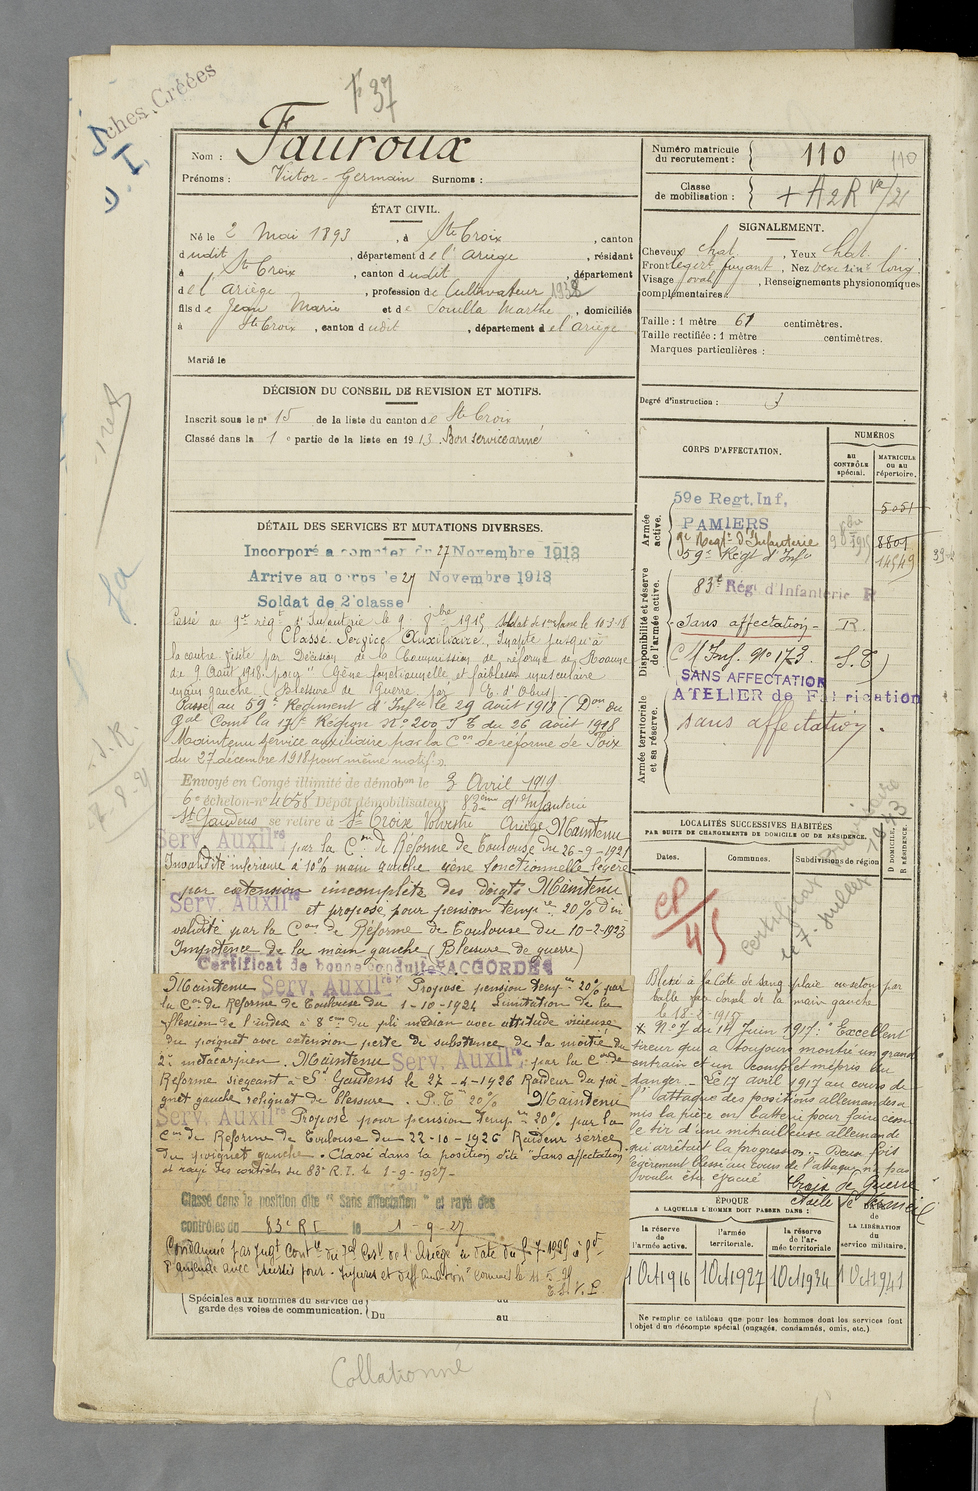 Fiches Créées
F 37
Nom : Fauroux
Prénoms : Victor-Germain Surnoms :
ÉTAT CIVIL.
Né le 2 Mai 1893, à Ste Croix, canton
dudit, département de l'Ariège, résidant
à Ste Croix, canton dudit, département
de l'Ariège, profession de Cultivateur 1932
fils de Jean Marie et de Souilla Marthe, domiciliés
à Ste Croix, canton dudit, département de l'Ariège
Marié le
DÉCISION DU CONSEIL DE REVISION ET MOTIFS.
Inscrit sous le n° 15 de la liste du canton de Ste Croix
Classé dans la 1e partie de la liste en 1913 Bon service armé
DÉTAIL DES SERVICES ET MUTATIONS DIVERSES.
Incorporé a compter du 27 Novembre 1913
Arrive au corps le 27 Novembre 1913
Soldat de 2e classe
Passé au 9e régt d'Infanterie le 9 8bre 1915 Soldat de 1e classe le 10-3-18
Classé Service Auxiliaire, Inapte jusqu'à
la contre visite par Décision de la Commission de réforme de Roanne
du 9 Août 1918. pour "Gêne fonctionnelle et faiblesse musculaire
main gauche (Blessure de guerre par E. d'Obus)
Passé au 59e Régiment d'Infie le 29 Août 1918 (Don du
Gal Comt la 17e Région N° 200 S T du 26 Août 1918
Maintenu service auxiliaire par la Con de réforme de Foix
du 27 décembre 1918 pour même motif).
Envoyé en Congé illimité de démobon le 3 Avril 1919
6e échelon n° 4658 Dépôt démobilisateur 83ème d'Infanterie
St Gaudens se retire à Ste Croix Volvestre Ariège Maintenu
Serv. Auxilre par la Con de Réforme de Toulouse du 26-9-1921
Invalidité inférieure à 10% main gauche gêne fonctionnelle légère
par extension incomplète des doigts Maintenu
Serv. Auxilre et proposé pour pension tempre 20% d'in
validité par la Con de Réforme de Toulouse du 10-2-1923
Impotence de la main gauche (Blessure de guerre)
Certificat de bonne conduite ACCORDÉ
Maintenu Serv. Auxilre Proposé pension tempre 20% par
la Con de Réforme de Toulouse du 1-10-1924 Limitation de la
flexion de l'index à 8 cm du pli médian avec attitude vicieuse
du poignet avec extension perte de substance de la moitié du
2e métacarpien. Maintenu Serv. Auxilre par la Con de
Réforme siégeant à St Gaudens le 27-4-1926 Raideur du poi-
gnet gauche reliquat de blessure. P.T. 20% Maintenu
Serv. Auxilre Proposé pour pension tempre 20% par la
Con de Réforme de Toulouse du 22-10-1926 Raideur serrée
du poignet gauche. Classé dans la position dite "Sans affectation"
et rayé des contrôles du 83e R.I. le 1-9-1927-
Classé dans la position dite " Sans affectation " et rayé des
contrôles du 83e RI le 1-9-27
Condamné par Jugt Contre du
Spéciales aux hommes du service de
garde des voies de communication. Du au
au
Numéro matricule du recrutement : 110 110
Classe de mobilisation : + A2R
SIGNALEMENT.
Cheveux chat., Yeux chat.
Front légert fuyant, Nez long
Visage ovale, Renseignements physionomiques
complémentaires :
Taille : 1 mètre 61 centimètres.
Taille rectifiée : 1 mètre centimètres.
Marques particulières :
Degré d'instruction : 3
CORPS D'AFFECTATION.
NUMÉROS
au CONTRÔLE spécial.
MATRICULE ou au répertoire.
Armée active.
59e Regt. Inf, 5051
PAMIERS
9e Regt d'Infanterie 9 8bre 1915 8801
59e Régt d'Infie 14549
Disponibilité et réserve de l'armée active.
83e Rég. d'Infanterie R
Sans affectation - R.
C M Inf. N° 173. S.T)
SANS AFFECTATION
ATELIER de Fabrication
Armée territoriale et sa réserve.
Sans affectation.
LOCALITÉS SUCCESSIVES HABITÉES
PAR SUITE DE CHANGEMENTS DE DOMICILE OU DE RÉSIDENCE.
Dates. Communes. Subdivisions de région D DOMICILE, R RÉSIDENCE.
CP/45
certificat provisoire
le 7 juillet 1943
Blessé à la Cote de sang plaie en séton par
balle face dorsale de la main gauche
le 18-2-1915
* N° 7 du 14 Juin 1917: "Excellent
tireur qui a toujours montré un grand
entrain et un complet mépris du
danger. - Le 17 avril 1917 au cours de
l'attaque des positions allemandes a
mis la pièce en batterie pour faire cesser
le tir d'une mitrailleuse allemande
qui arrêtait la progression. - Deux fois
légèrement blessé au cours de l'attaque, n'a pas
voulu être évacué Croix de Guerre
ÉPOQUE
A LAQUELLE L'HOMME DOIT PASSER DANS :
la réserve de l'armée active.
l'armée territoriale.
la réserve de l'armée territoriale
DATE de LA LIBÉRATION du service militaire.
1 Oct 1916 1 Oct 1927 1 Oct 1934 1 Oct 1941
Ne remplir ce tableau que pour les hommes dont les services font
l'objet d'un décompte spécial (engagés, condamnés, omis, etc.)
Collationné